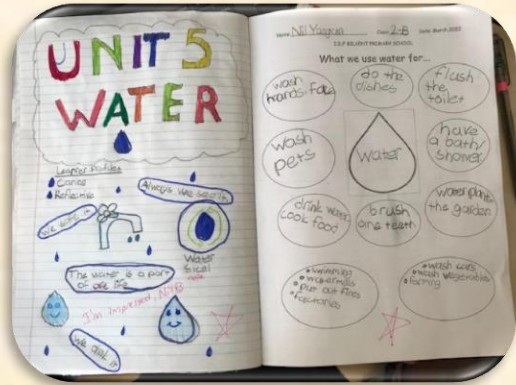 UNIT 5
WATER
Learner Profiles
Caring
Reflective
Always use
We
Water
The water is a part
of our life
I'm impressed, NYB
We
Name: Nil Class: 2-B Date: March 2020
PRIMARY SCHOOL
What we use water for...
wash
hands-face
do the
dishes
flush
the
toilet
wash
pets
water
have
a bath/
shower
drink water
cook food
brush
our teeth
water plants
the garden
swimming
watermills
put out fires
factories
wash cars
wash vegetables
farming